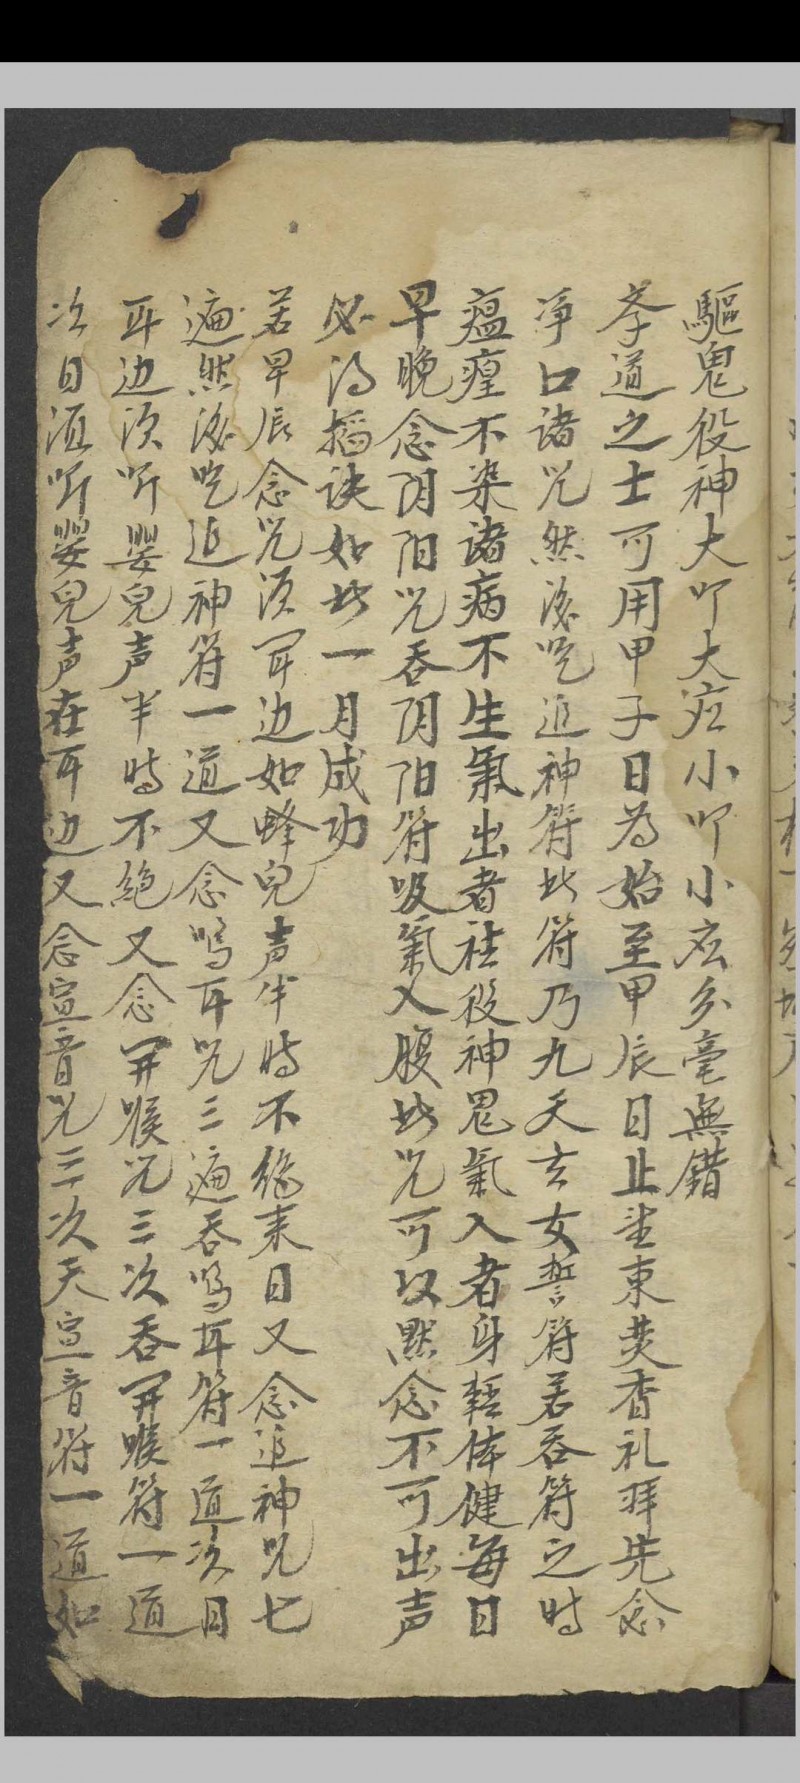 驅鬼役神大叩大应小叩小应分毫無錯
孝道之士可用甲子日為始至甲辰日止坐東焚香礼拜先念
凈口諸咒然後吃追神符此符乃九天玄女誓符若吞符之時
瘟瘴不染諸病不生氣出者祛役神鬼氣入者身輕体健每日
早晚念阴阳咒吞阴阳符吸氣入腹此咒可以默念不可出声
必須掐诀如此一月成功
若早辰念咒須耳边如蜂兒声半時不絕来日又念追神咒七
遍然後吃追神符一道又念鳴耳咒三遍吞鳴耳符一道次日
耳边須听嬰兒声半時不絕又念開喉咒三次吞開喉符一道
次日須听嬰兒声在耳边又念宣音咒三次天宣音符一道如